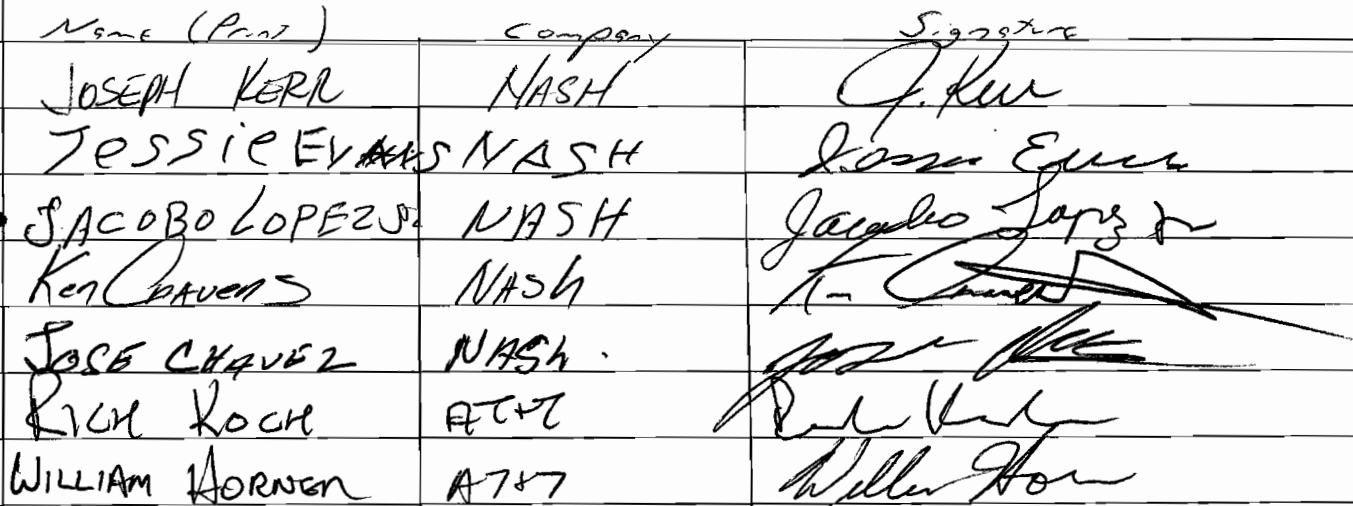 Name (Print) Company Signature
JOSEPH KERR NASH J. Kerr
Jessie EVANS NASH Jessie Evans
JACOBO LOPEZ JR NASH Jacobo Lopez Jr
Ken CRAVENS NASh Ken
JOSE CHAVEZ NASh. Jose
RICH KOCH AT+T
WILLIAM HORNER AT+T